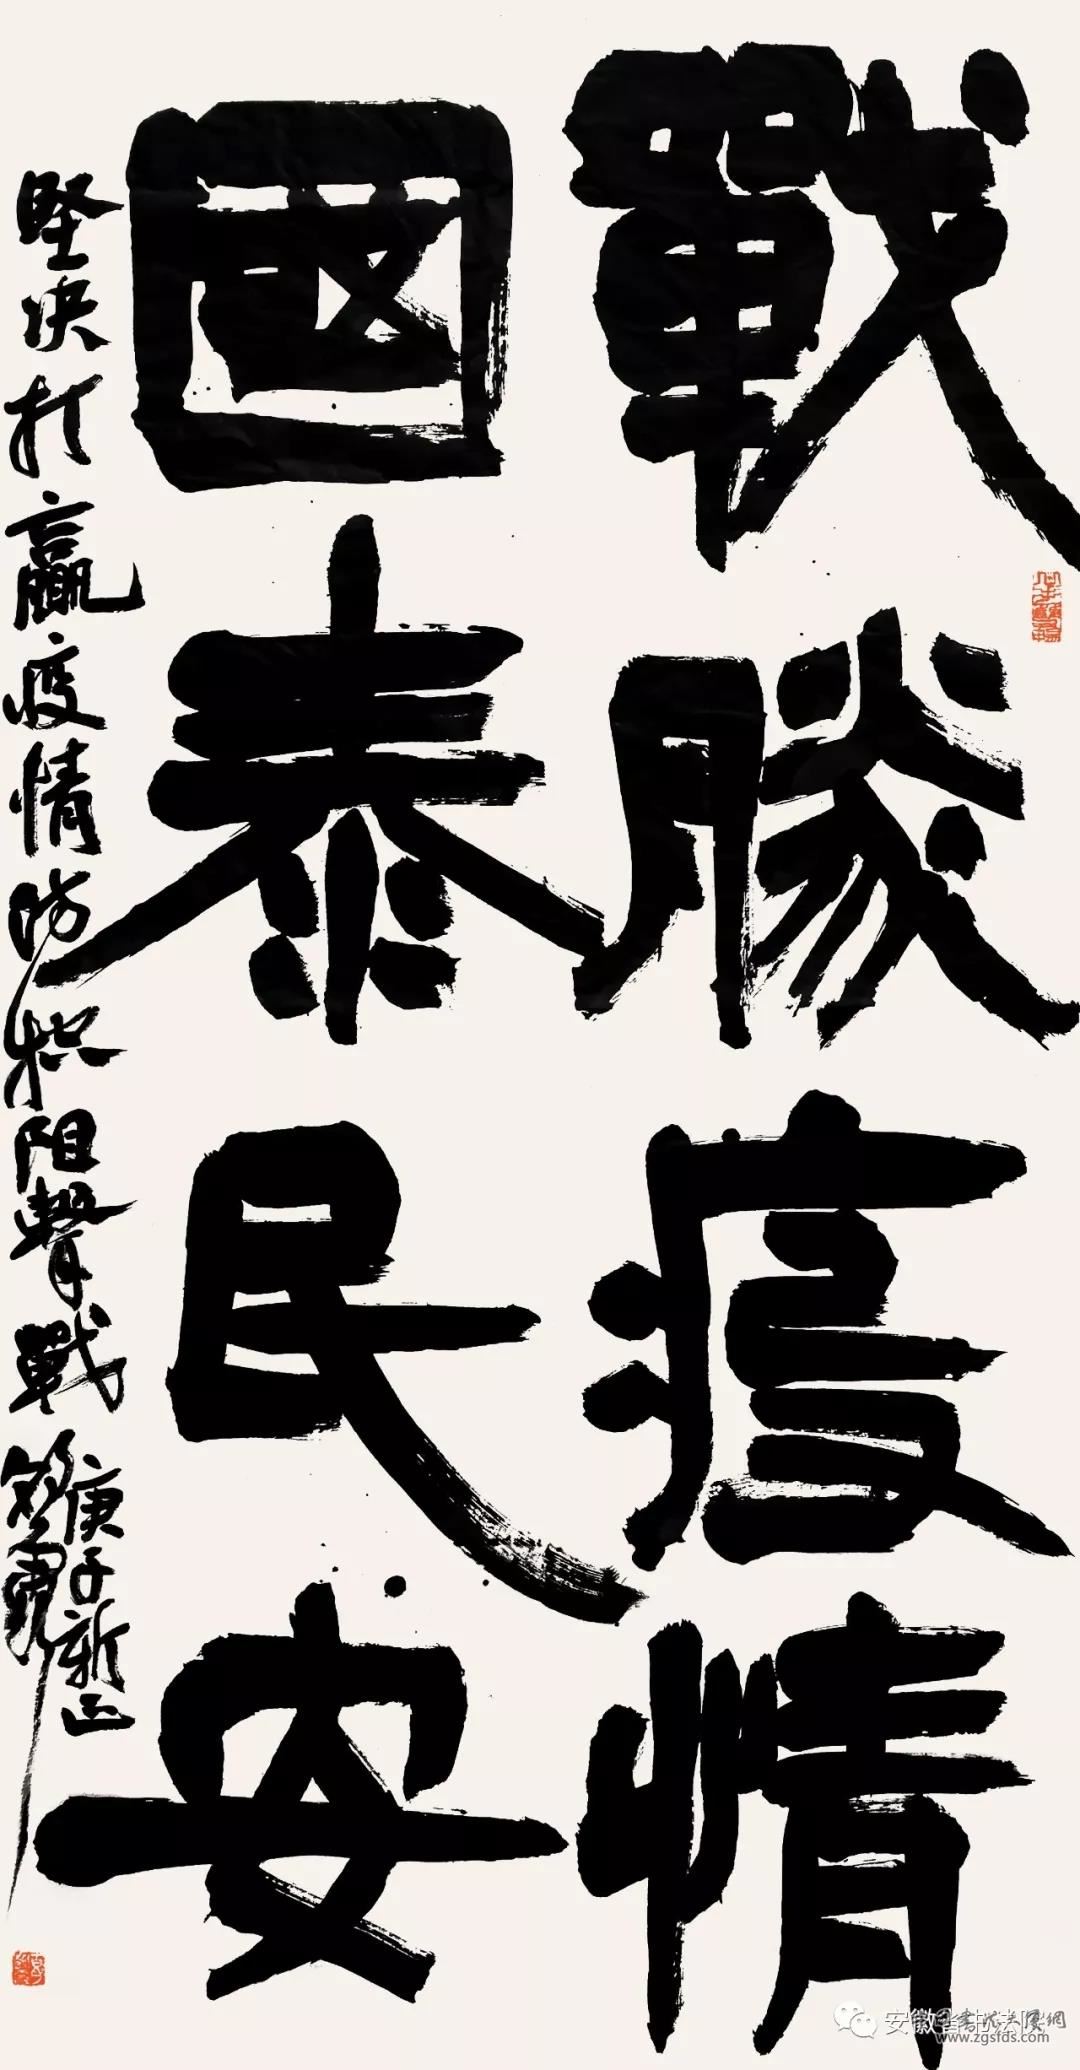 戰勝疫情
國泰民安
堅决打贏疫情防控阻擊戰
庚子新正
安徽省书法院
www.zgsfds.com